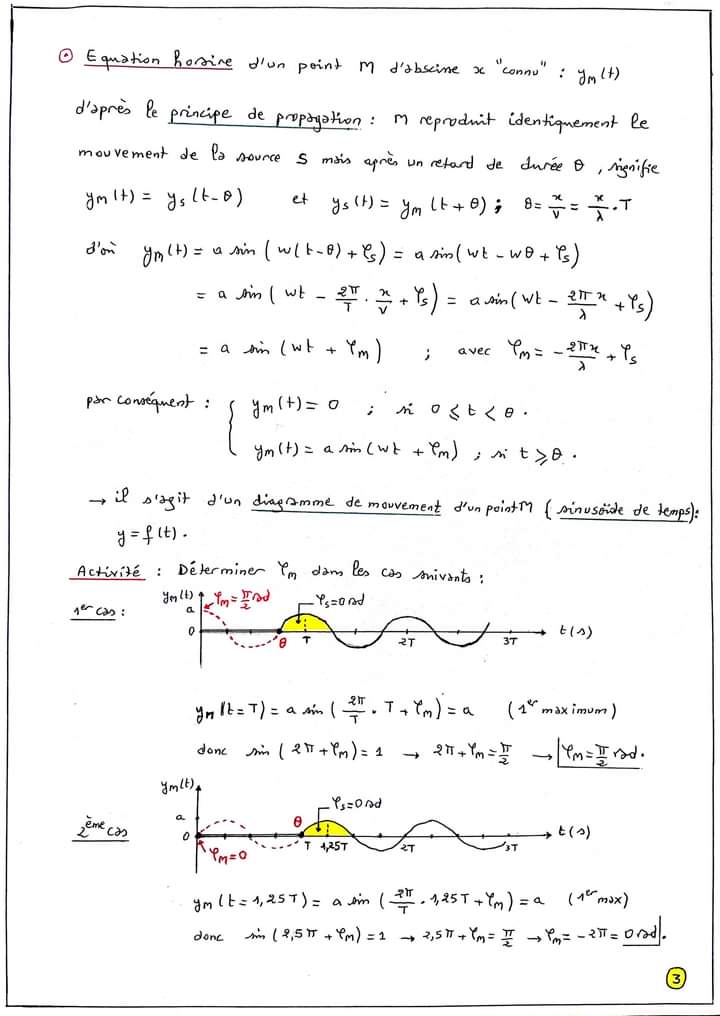 ⊙ Equation horaire d'un point M d'abscisse x "connu" : yM(t)
d'après le principe de propagation : M reproduit identiquement le
mouvement de la source S mais après un retard de durée θ, signifie
yM(t) = ys(t-θ) et ys(t) = yM(t+θ) ; θ = x/v = x/λ . T
d'où yM(t) = a sin(w(t-θ) + φs) = a sin(wt - wθ + φs)
= a sin(wt - 2π/T . x/v + φs) = a sin(wt - 2πx/λ + φs)
= a sin(wt + φM) ; avec φM = -2πx/λ + φs
par conséquent : { yM(t) = 0 ; si 0 ⩽ t < θ.
yM(t) = a sin(wt + φM) ; si t ⩾ θ.
→ il s'agit d'un diagramme de mouvement d'un point M (sinusoïde de temps):
y = f(t).
Activité : Déterminer φM dans les cas suivants :
1er cas :
yM(t) φM = π/2 rad φs = 0 rad
a
0 θ T 2T 3T t(s)
yM(t=T) = a sin(2π/T . T + φM) = a (1er maximum)
donc sin(2π + φM) = 1 → 2π + φM = π/2 → φM = π/2 rad.
2ème cas
yM(t) φs = 0 rad
a θ
0 T 1,25T 2T 3T t(s)
φM = 0
yM(t = 1,25T) = a sin(2π/T . 1,25T + φM) = a (1er max)
donc sin(2,5π + φM) = 1 → 2,5π + φM = π/2 → φM = -2π = 0 rad.
3